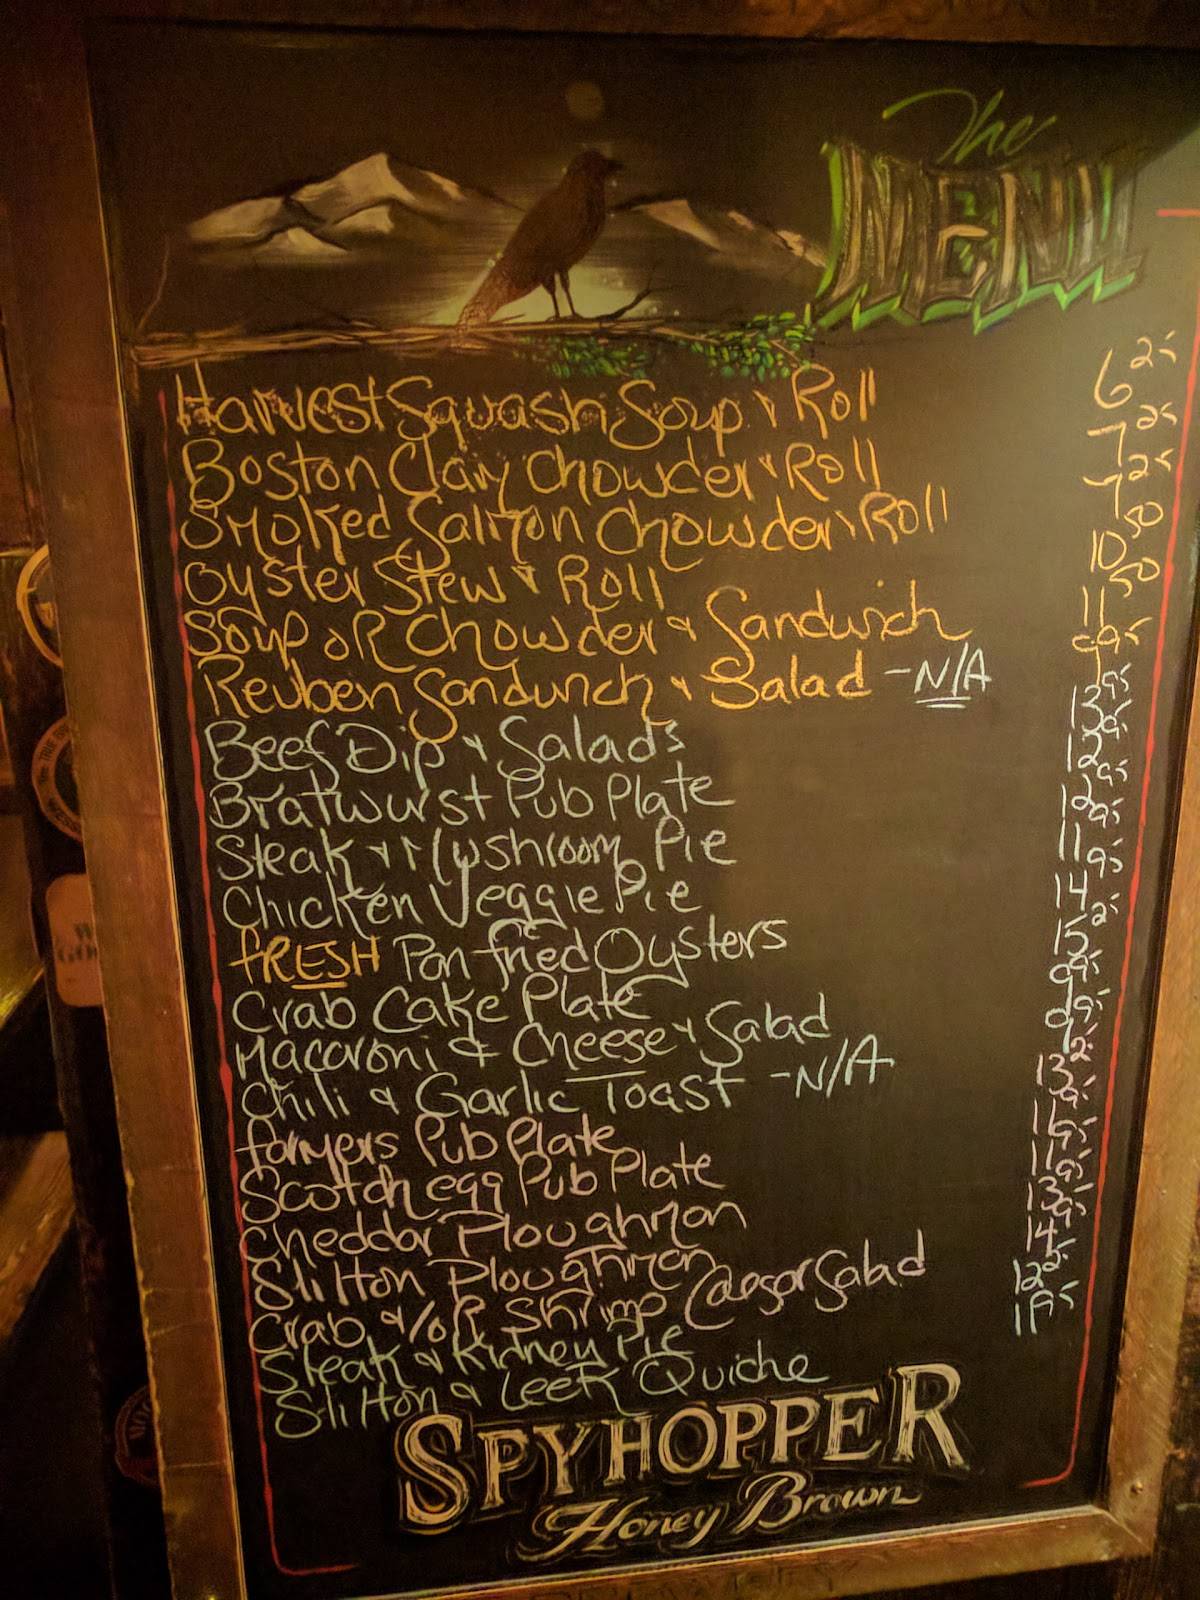 The MENU
Harvest Squash Soup & Roll 6 25
Boston Clam Chowder & Roll 7 25
Smoked Salmon Chowder & Roll 7 25
Oyster Stew & Roll 10 50
Soup or Chowder & Sandwich 11 50
Reuben Sandwich & Salad - N/A
Beef Dip & Salads 13 95
Bratwurst Pub Plate 12 95
Steak & Mushroom Pie 12 95
Chicken Veggie Pie 11 95
FRESH Pan fried Oysters 14 95
Crab Cake Plate 15 25
Macaroni & Cheese & Salad 9 95
Chili & Garlic Toast - N/A 9 95
Farmers Pub Plate 13 25
Scotch egg Pub Plate 11 95
Cheddar Ploughman 11 95
Stilton Ploughman 13 95
Crab &/or Shrimp Caesar Salad 14 95
Steak & Kidney Pie 12 25
Stilton & Leek Quiche
SPYHOPPER
Honey Brown